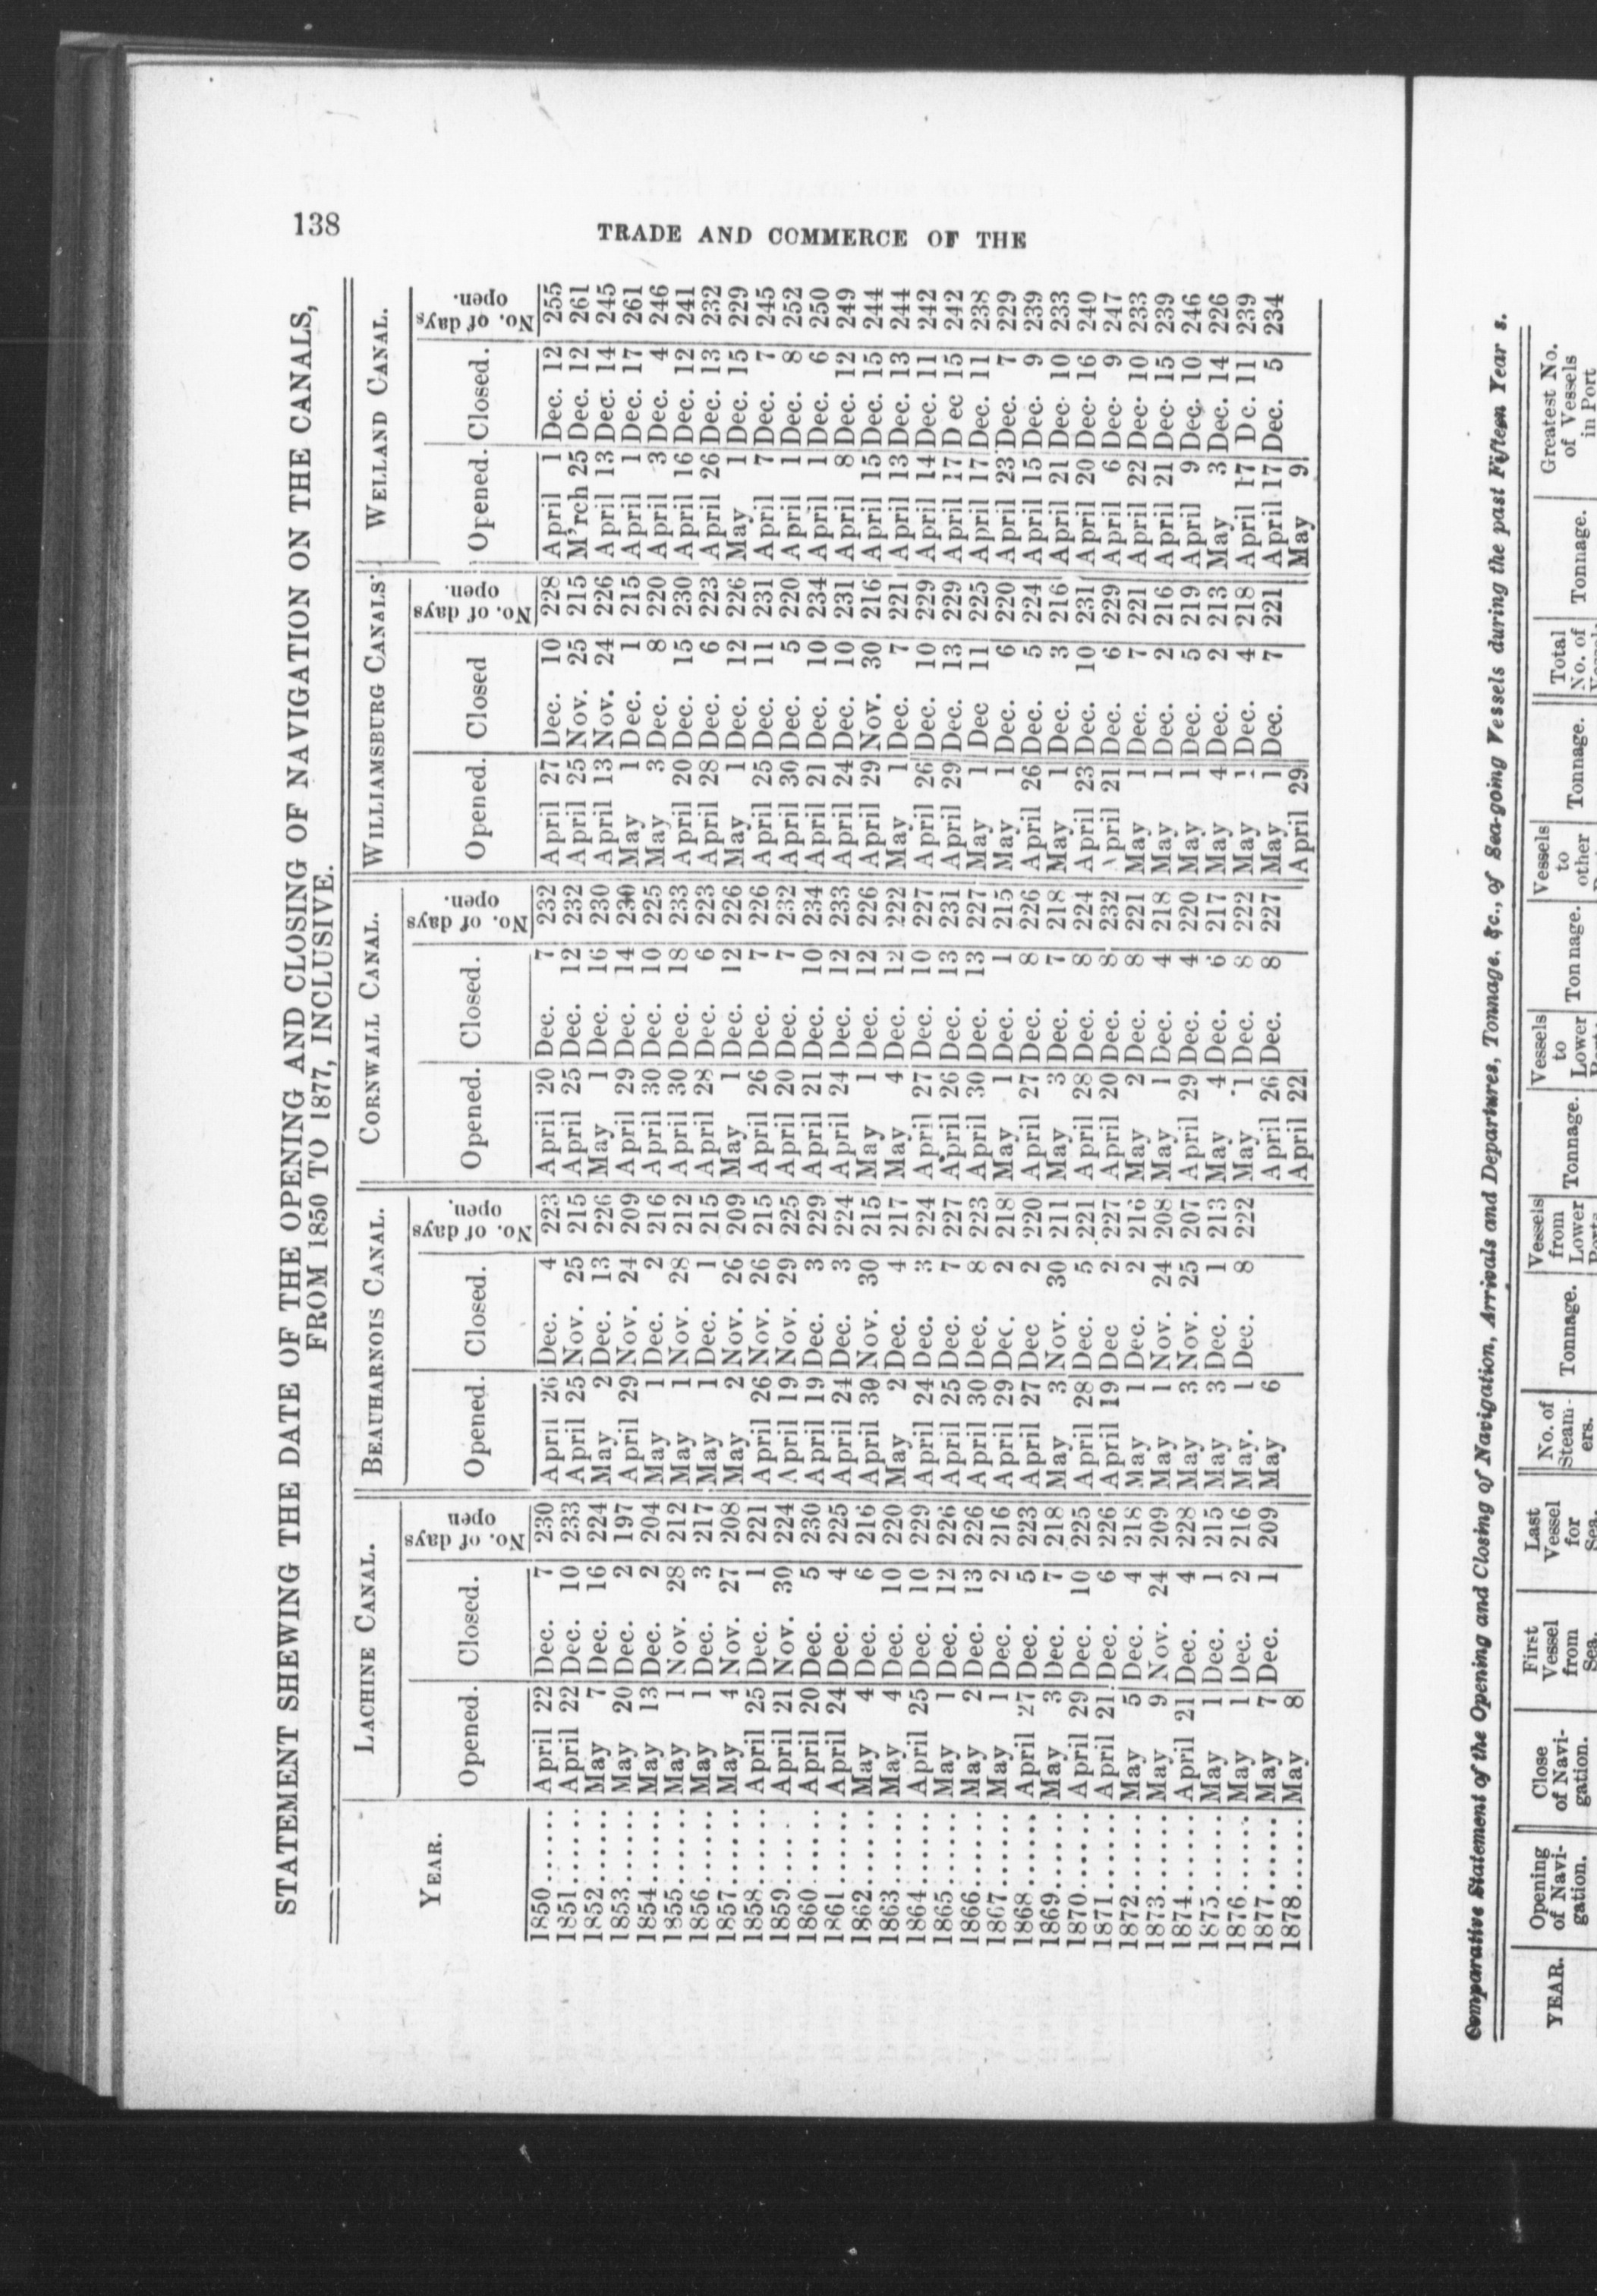 138
TRADE AND COMMERCE OF THE
STATEMENT SHEWING THE DATE OF THE OPENING AND CLOSING OF NAVIGATION ON THE CANALS,
FROM 1850 TO 1877, INCLUSIVE.
YEAR. LACHINE CANAL. BEAUHARNOIS CANAL. CORNWALL CANAL. WILLIAMSBURG CANALS. WELLAND CANAL.
Opened. Closed. No. of days open Opened. Closed. No. of days open. Opened. Closed. No. of days open. Opened. Closed No. of days open. Opened. Closed. No. of days open.
1850...... April 22 Dec. 7 230 April 26 Dec. 4 223 April 20 Dec. 7 232 April 27 Dec. 10 228 April 1 Dec. 12 255
1851...... April 22 Dec. 10 233 April 25 Nov. 25 215 April 25 Dec. 12 232 April 25 Nov. 25 215 M'rch 25 Dec. 12 261
1852...... May 7 Dec. 16 224 May 2 Dec. 13 226 May 1 Dec. 16 230 April 13 Nov. 24 226 April 13 Dec. 14 245
1853...... May 20 Dec. 2 197 April 29 Nov. 24 209 April 29 Dec. 14 230 May 1 Dec. 1 215 April 1 Dec. 17 261
1854...... May 13 Dec. 2 204 May 1 Dec. 2 216 April 30 Dec. 10 225 May 3 Dec. 8 220 April 3 Dec. 4 246
1855...... May 1 Nov. 28 212 May 1 Nov. 28 212 April 30 Dec. 18 233 April 20 Dec. 15 230 April 16 Dec. 12 241
1856...... May 1 Dec. 3 217 May 1 Dec. 1 215 April 28 Dec. 6 223 April 28 Dec. 6 223 April 26 Dec. 13 232
1857...... May 4 Nov. 27 208 May 2 Nov. 26 209 May 1 Dec. 12 226 May 1 Dec. 12 226 May 1 Dec. 15 229
1858...... April 25 Dec. 1 221 April 26 Nov. 26 215 April 26 Dec. 7 226 April 25 Dec. 11 231 April 7 Dec. 7 245
1859...... April 21 Nov. 30 224 April 19 Nov. 29 225 April 20 Dec. 7 232 April 30 Dec. 5 220 April 1 Dec. 8 252
1860...... April 20 Dec. 5 230 April 19 Dec. 3 229 April 21 Dec. 10 234 April 21 Dec. 10 234 April 1 Dec. 6 250
1861...... April 24 Dec. 4 225 April 24 Dec. 3 224 April 24 Dec. 12 233 April 24 Dec. 10 231 April 8 Dec. 12 249
1862...... May 4 Dec. 6 216 April 30 Nov. 30 215 May 1 Dec. 12 226 April 29 Nov. 30 216 April 15 Dec. 15 244
1863...... May 4 Dec. 10 220 May 2 Dec. 4 217 May 4 Dec. 12 222 May 1 Dec. 7 221 April 13 Dec. 13 244
1864...... April 25 Dec. 10 229 April 24 Dec. 3 224 April 27 Dec. 10 227 April 26 Dec. 10 229 April 14 Dec. 11 242
1865...... May 1 Dec. 12 226 April 25 Dec. 7 227 April 26 Dec. 13 231 April 29 Dec. 13 229 April 17 Dec 15 242
1866...... May 2 Dec. 13 226 April 30 Dec. 8 223 April 30 Dec. 13 227 May 1 Dec 11 225 April 17 Dec. 11 238
1867...... May 1 Dec. 2 216 April 29 Dec. 2 218 May 1 Dec. 1 215 May 1 Dec. 6 220 April 23 Dec. 7 229
1868...... April 27 Dec. 5 223 April 27 Dec 2 220 April 27 Dec. 8 226 April 26 Dec. 5 224 April 15 Dec. 9 239
1869...... May 3 Dec. 7 218 May 3 Nov. 30 211 May 3 Dec. 7 218 May 1 Dec. 3 216 April 21 Dec. 10 233
1870...... April 29 Dec. 10 225 April 28 Dec. 5 221 April 28 Dec. 8 224 April 23 Dec. 10 231 April 20 Dec. 16 240
1871...... April 21 Dec. 6 226 April 19 Dec 2 227 April 20 Dec. 8 232 April 21 Dec. 6 229 April 6 Dec. 9 247
1872...... May 5 Dec. 4 218 May 1 Dec. 2 216 May 2 Dec. 8 221 May 1 Dec. 7 221 April 22 Dec. 10 233
1873...... May 9 Nov. 24 209 May 1 Nov. 24 208 May 1 Dec. 4 218 May 1 Dec. 2 216 April 21 Dec. 15 239
1874...... April 21 Dec. 4 228 May 3 Nov. 25 207 April 29 Dec. 4 220 May 1 Dec. 5 219 April 9 Dec. 10 246
1875...... May 1 Dec. 1 215 May 3 Dec. 1 213 May 4 Dec. 6 217 May 4 Dec. 2 213 May 3 Dec. 14 226
1876...... May 1 Dec. 2 216 May. 1 Dec. 8 222 May 1 Dec. 8 222 May 1 Dec. 4 218 April 17 Dc. 11 239
1877...... May 7 Dec. 1 209 May 6 April 26 Dec. 8 227 May 1 Dec. 7 221 April 17 Dec. 5 234
1878...... May 8 April 22 April 29 May 9
Comparative Statement of the Opening and Closing of Navigation, Arrivals and Departures, Tonnage, &c., of Sea-going Vessels during the past Fifteen Year s.
YEAR. Opening of Navi-gation. Close of Navi-gation. First Vessel from Sea. Last Vessel for Sea. No. of Steam-ers. Tonnage. Vessels from Lower Tonnage. Vessels to Lower Tonnage. Vessels to other Tonnage. Total No. of Tonnage. Greatest No. of Vessels in Port